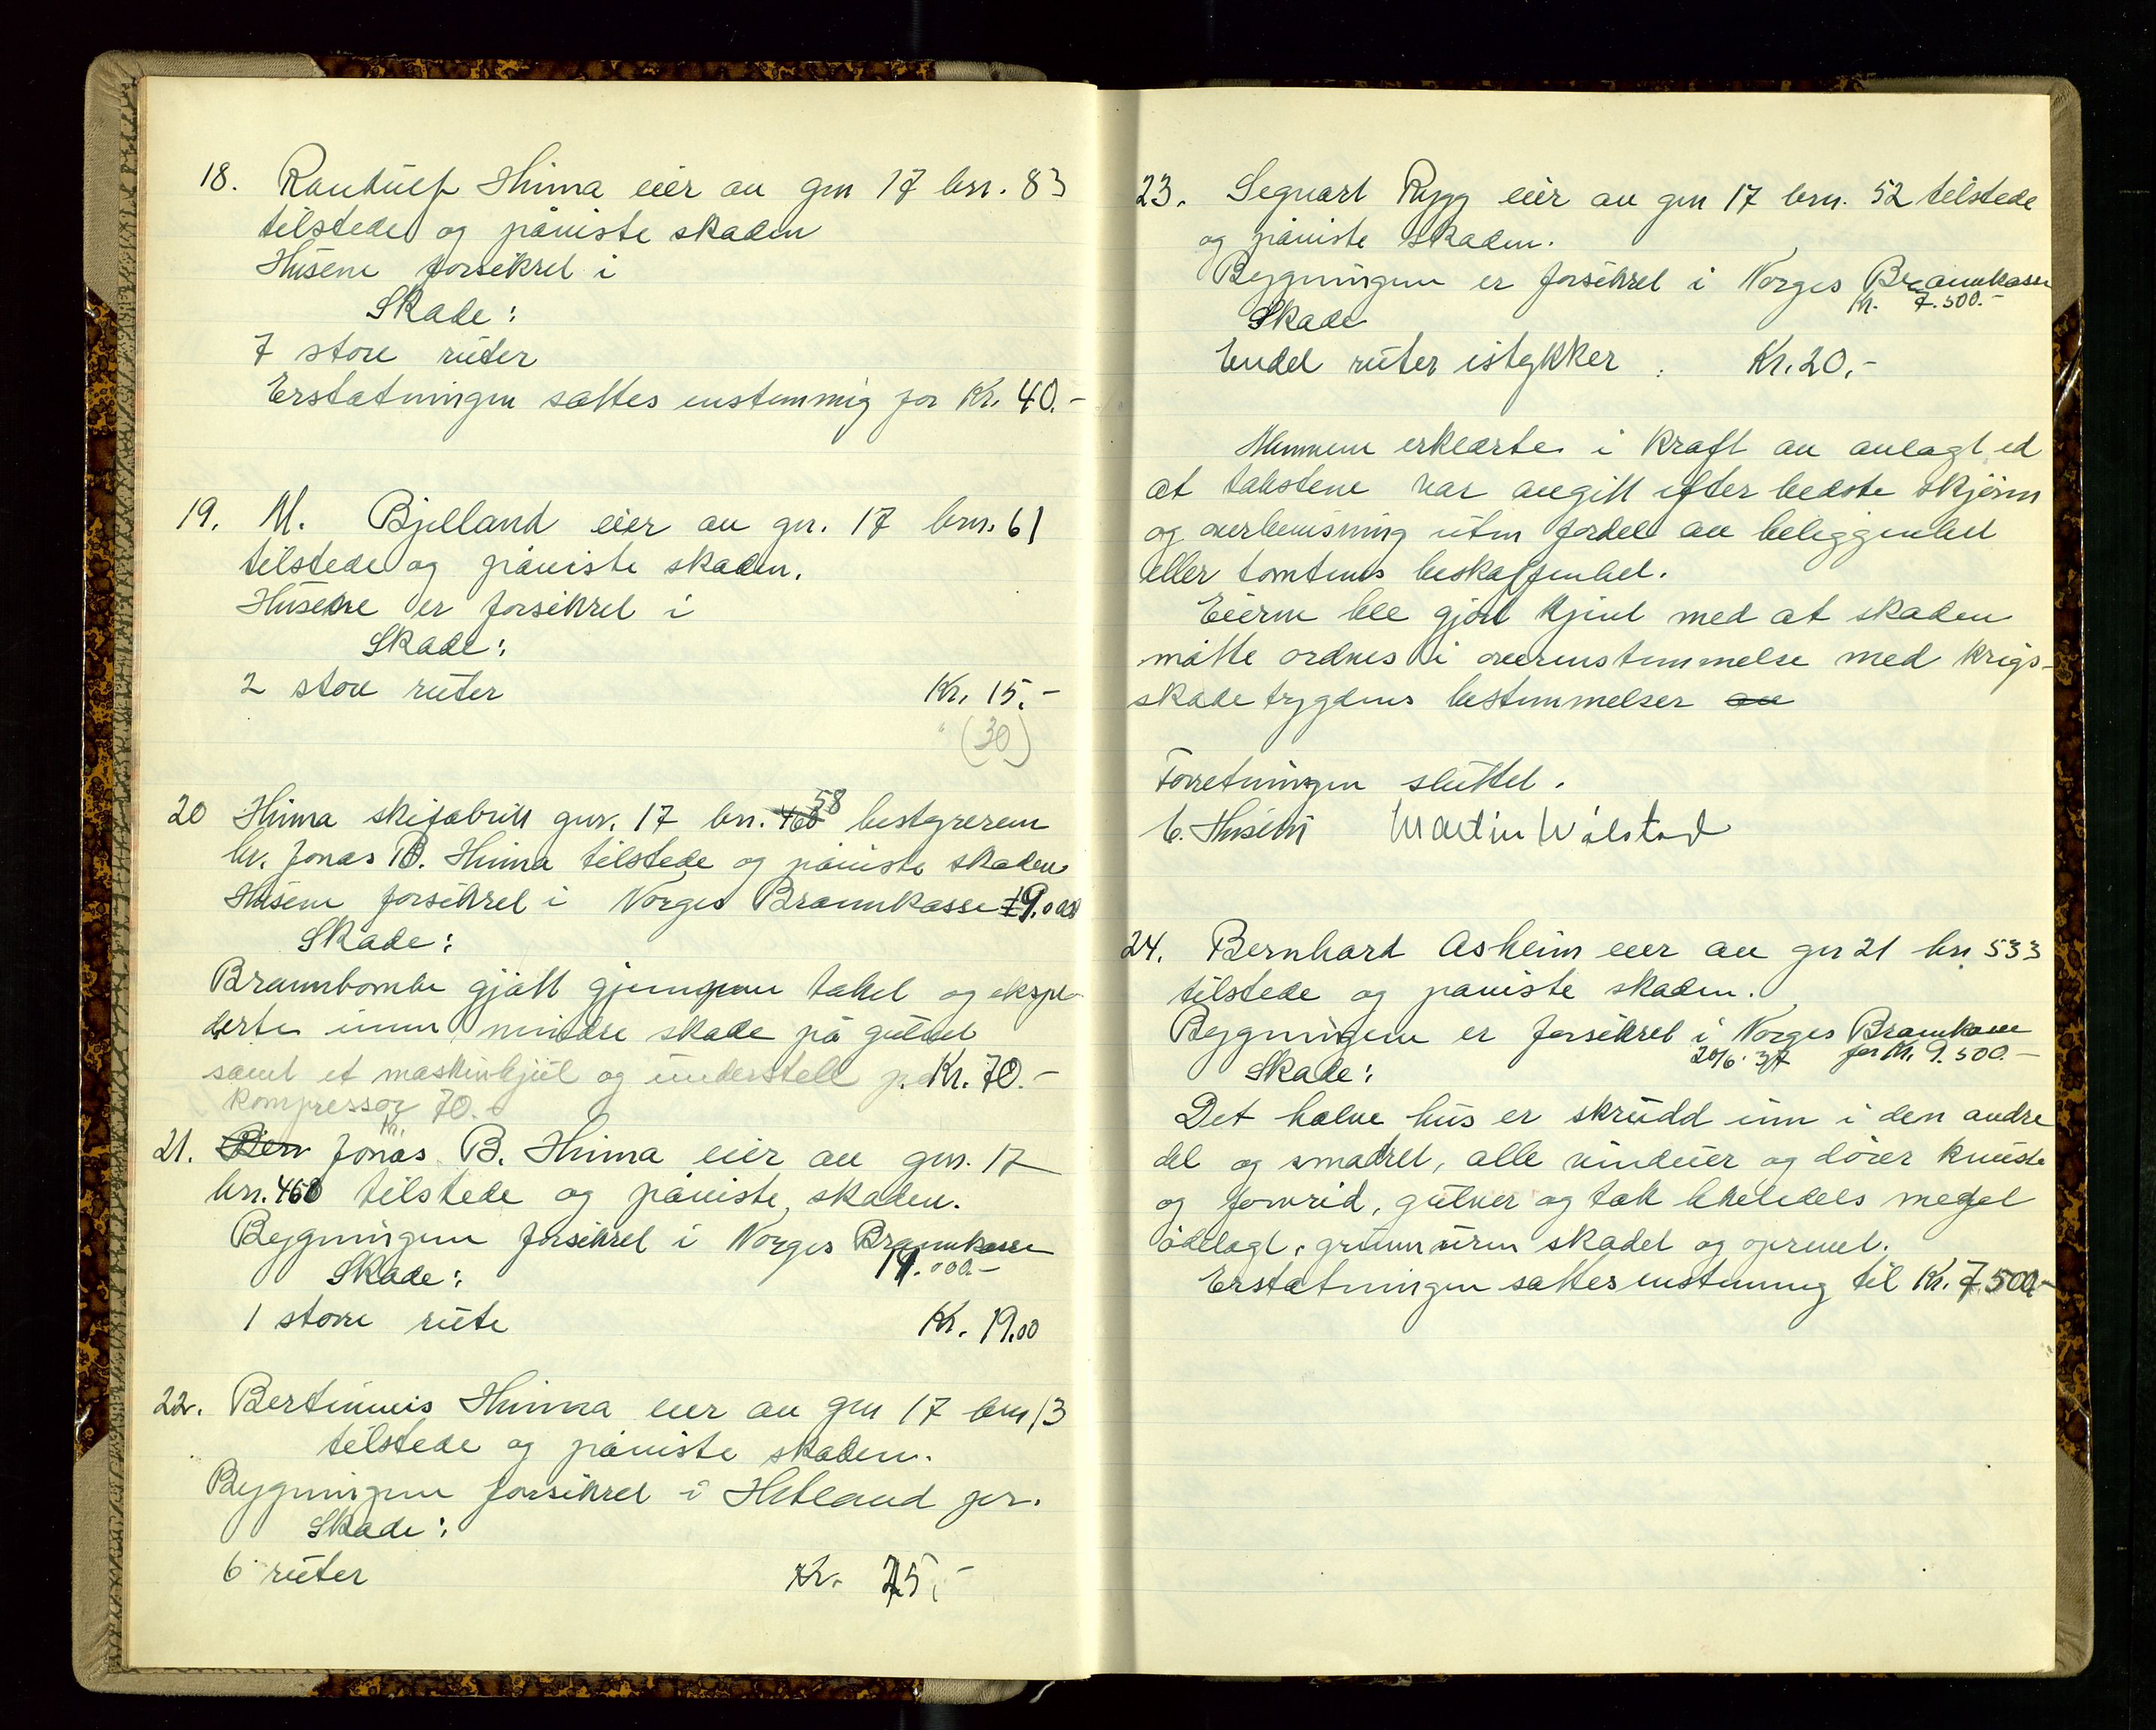 18. Randulf Hinna eier av gnr 17 brn. 83
tilstede og påviste skaden
Husene forsikret i
Skade:
7 store ruter
Erstatningen sattes enstemmig for Kr. 40.-
19. M. Bjelland eier av gn. 17 brn. 61
tilstede og påviste skaden.
Husene er forsikret i
Skade:
2 store ruter Kr. 15.-
" (30)
58
20 Hinna skifabrik gnr. 17 brn. 460 bestyreren
hr. Jonas B. Hinna tilstede og påviste skaden
Husene forsikret i Norges Brannkasse 19.000
Skade:
Brannbombe gjått gjennem taket og ekspl-
derte innen mindre skade på gulvet
samt et maskinhjul og understell p. Kr. 70.-
kompressor 70.-
Kr.
21. Ber Jonas B. Hinna eier av gnr. 17
brn. 460 tilstede og påviste skaden.
Bygningen forsikret i Norges Brannkasse
19.000.-
Skade:
1 storre rute Kr. 19.00
22. Bertinius Hinna eier av gnr 17 brn 13
tilstede og påviste skaden.
Bygningen forsikret i Hetland gr.
Skade:
6 ruter Kr. 75.-
23. Seguart Rygg eier av gnr 17 brn. 52 tilstede
og påviste skaden.
Bygningen er forsikret i Norges Brannkasse
Kr. 7.500.-
Skade
Endel ruter istykker . Kr. 20.-
Mennene erklærte i kraft av avlagt ed
at takstene var avgitt efter bedste skjønn
og overbevisning uten fordel av beliggenhet
eller tomtens beskaffenhet.
Eieren ble gjort kjent med at skaden
måtte ordnes i overenstemmelse med krigs-
skadetrygdens bestemmelser av
Forretningen sluttet.
Martin Wålstad
24. Bernhard Asheim eier av gn 21 bn 533
tilstede og påviste skaden.
Bygningen er forsikret i Norges Brannkasse
20/6 37 for Kr. 9.500.-
Skade:
Det halve hus er skrudd inn i den andre
del og smadret, alle vinduer og dører knuste
og forvrid, gulver og tak likeledels meget
ødelagt, grunnmuren skadet og oprevet.
Erstatningen sattes enstemmig til Kr. 7.500.-